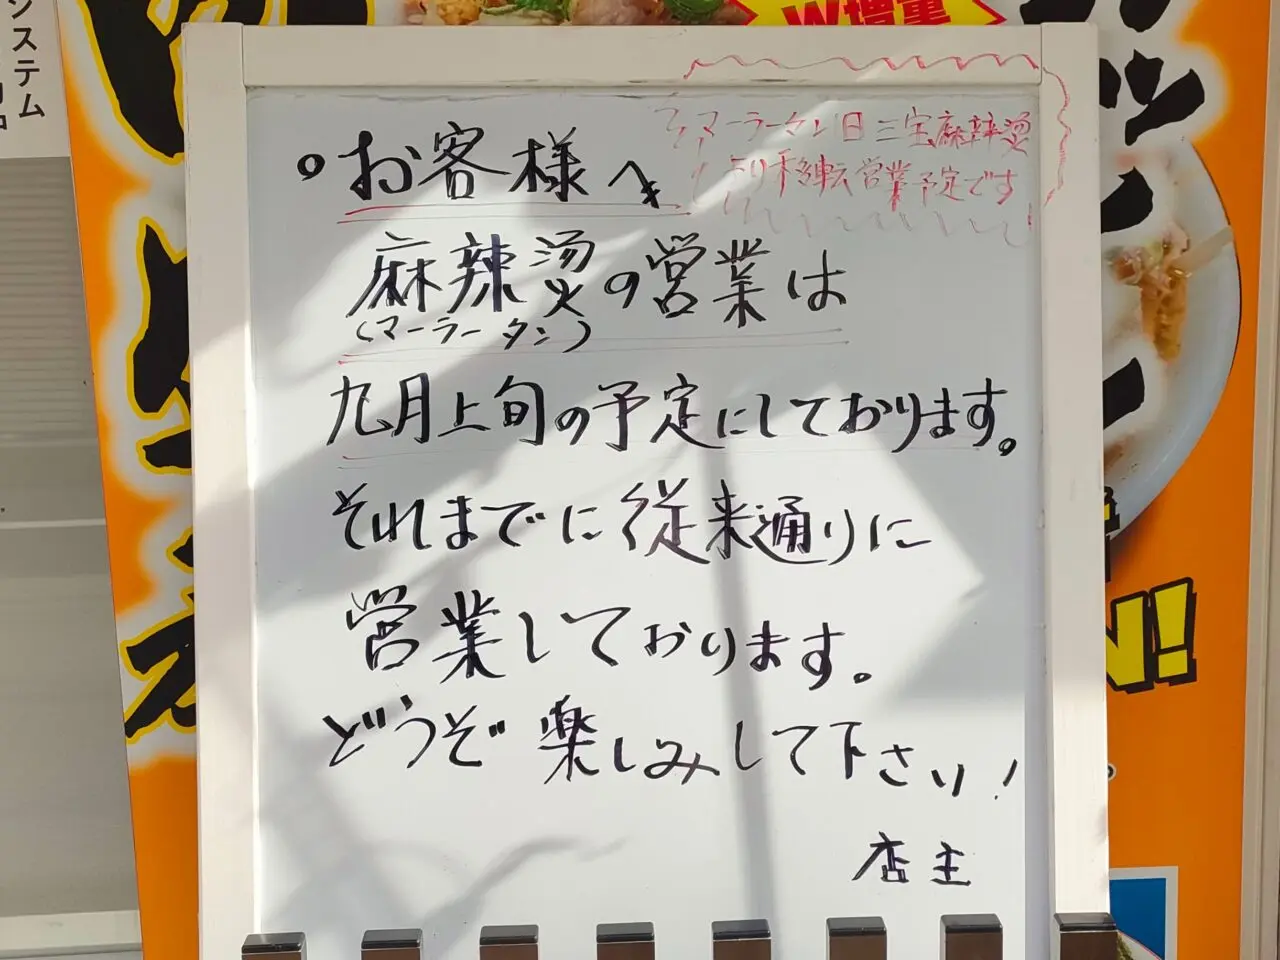 ンステム
W増量
マーラータン日三宝麻辣烫
より移転営業予定です
。お客様へ
麻辣烫の営業は
(マーラータン)
九月上旬の予定にしております。
それまでに従来通りに
営業しております。
どうぞ楽しみして下さい!
店主
N!